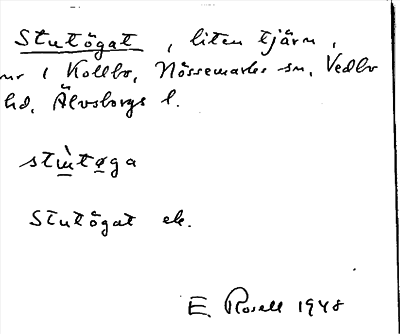 Stutögat, liten tjärn,
nr 1 Kollbo, Nössemarks sn, Vedbo
hd, Älvsborgs l.
stùtøga
Stutögat ek.
E Rosell 1948